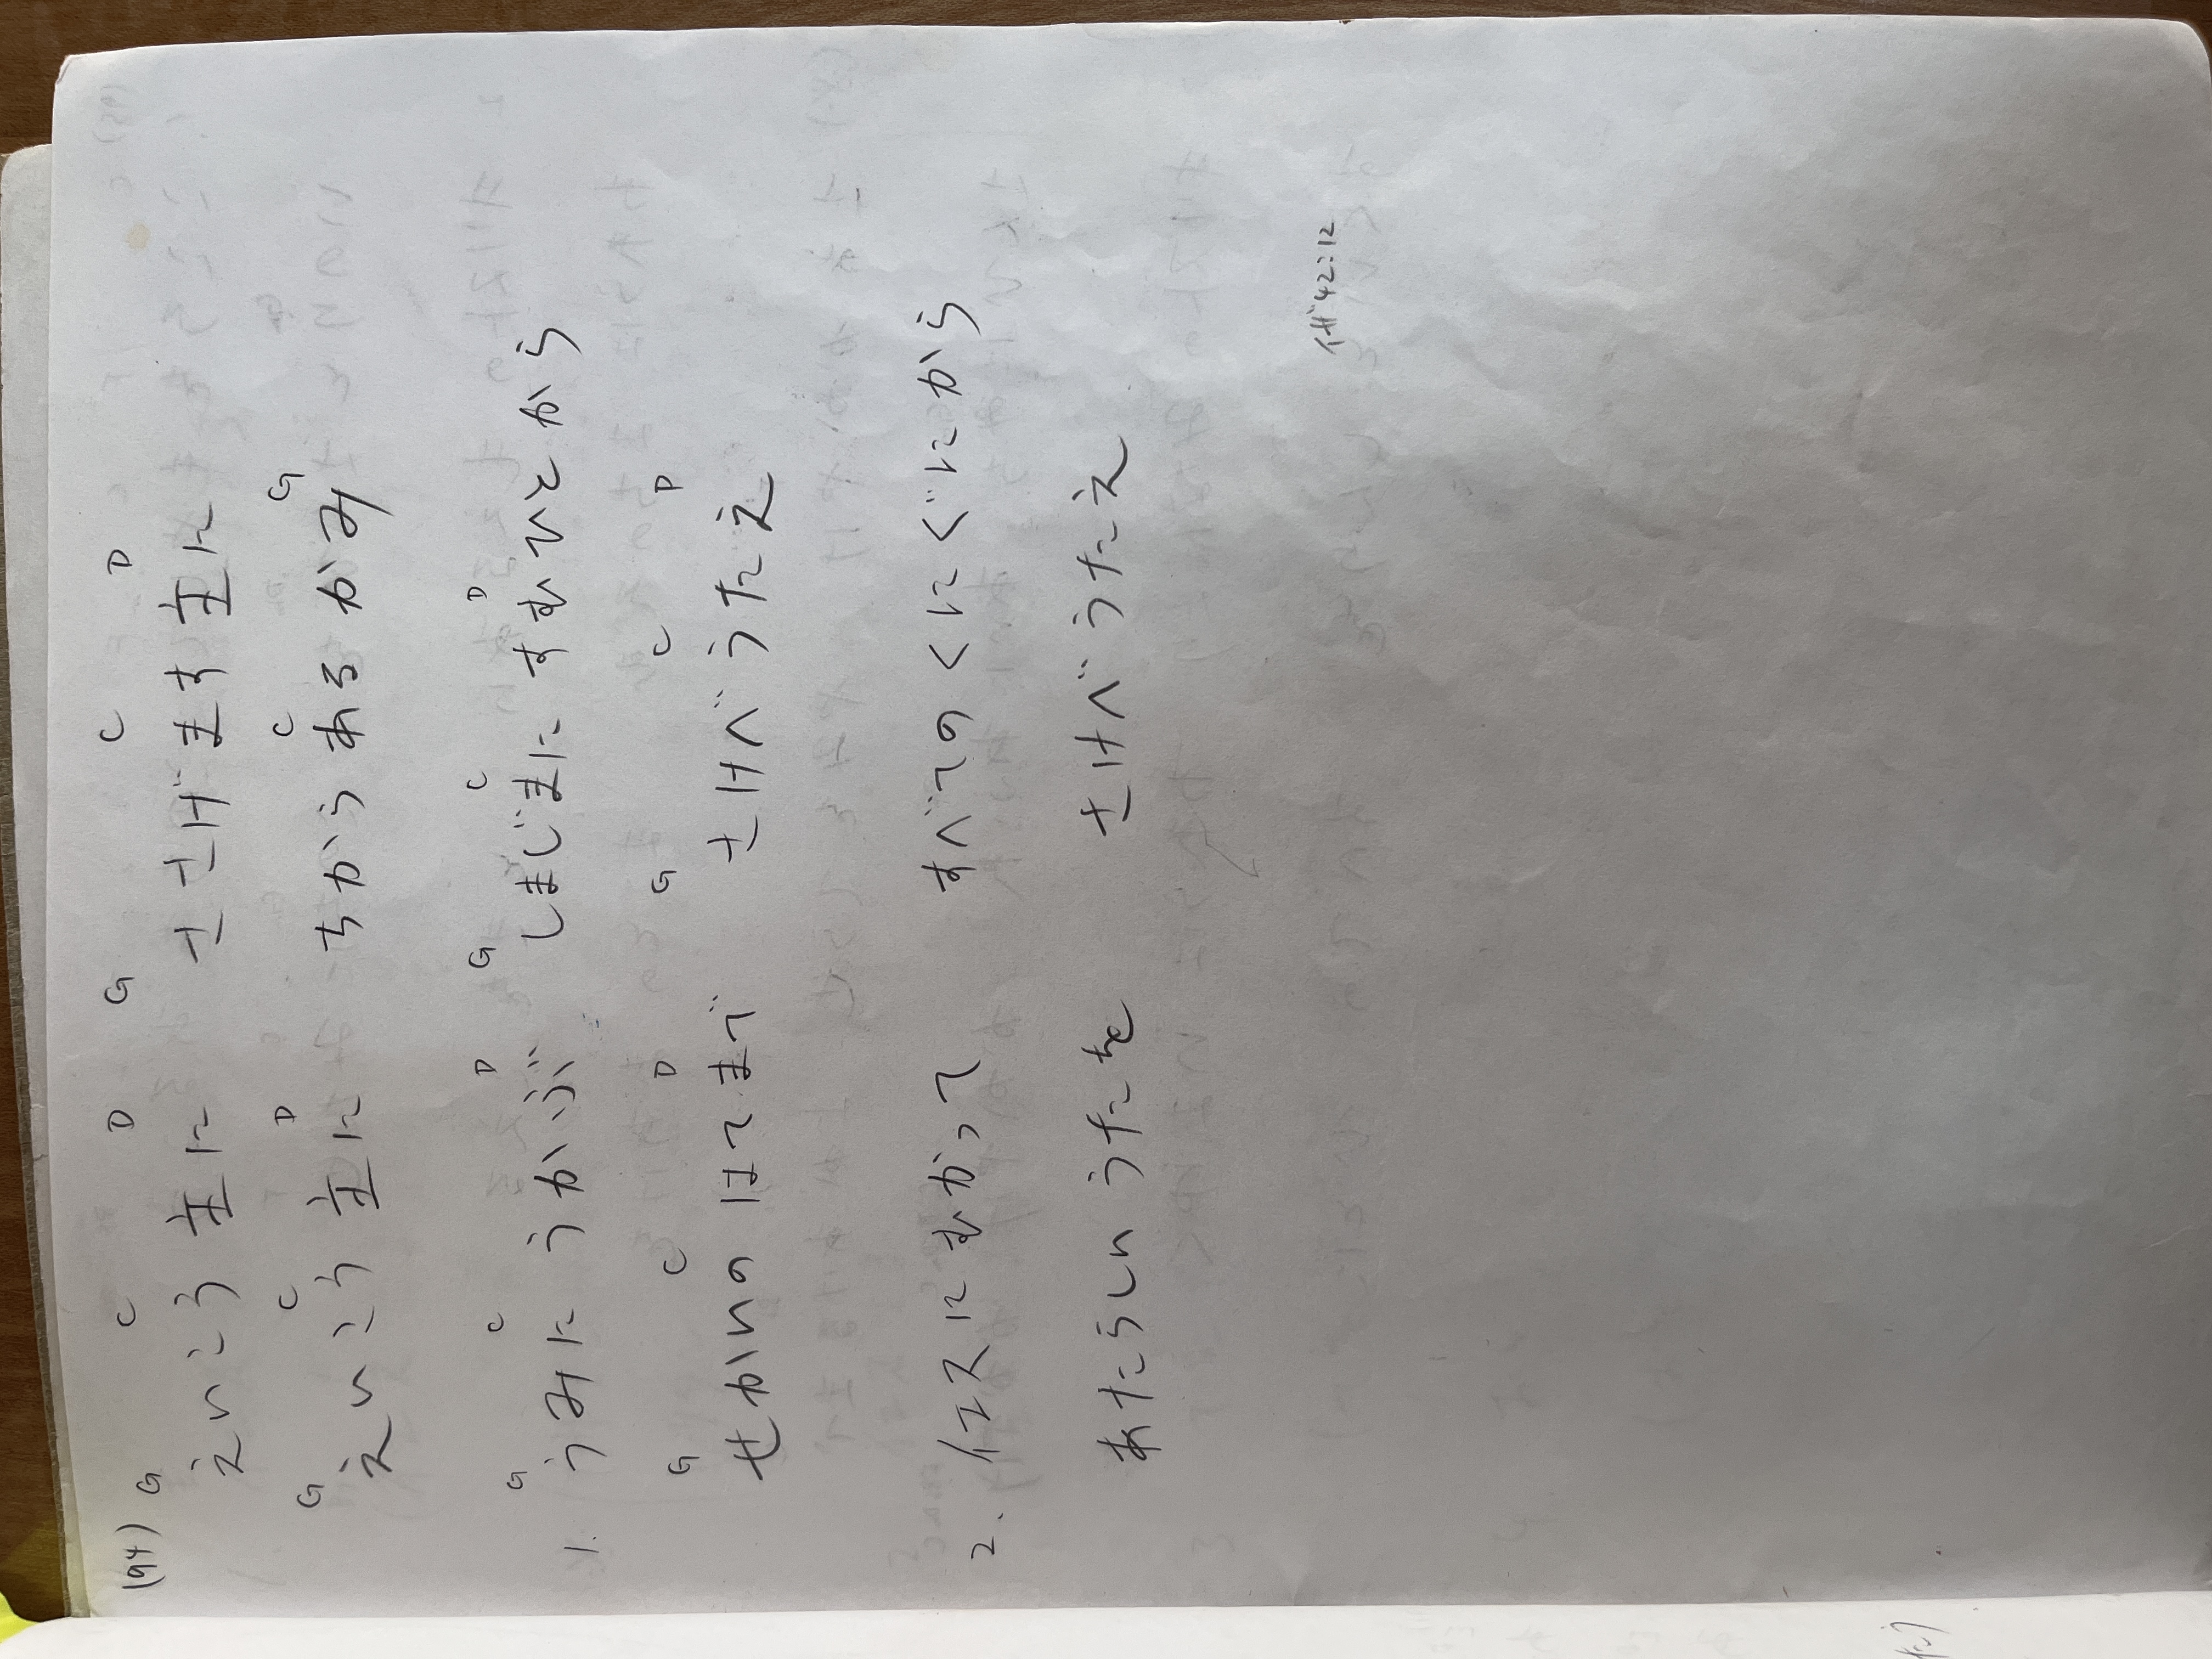 194) G C D G C D
えいこう 主に ささげます 主に
G C D C G
えいこう 主に ちからある かみ
G C D G C D
1. うみに うかぶ しまじまに すむひとから
G C D G C D
せかいの はてまで さけべ うたえ
2. イエスにむかって すべてのくにぐにから
あたらしい うたを さけべ うたえ
イザ42:12